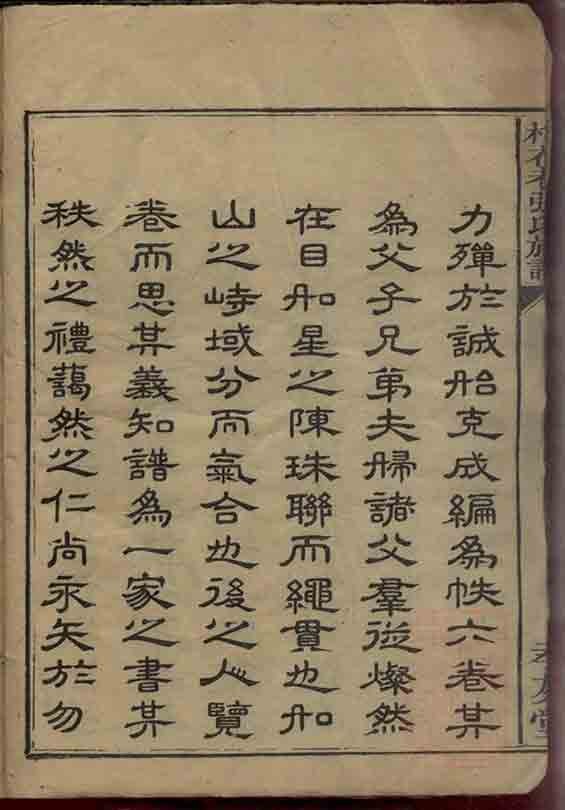 張氏族譜
友堂
力殫於誠始克成編為帙六卷其
為父子兄弟夫婦諸父羣從燦然
在目如星之陳珠聯而繩貫也如
山之峙域分而氣合也後之人覽
卷而思其義知譜為一家之書其
秩然之禮藹然之仁尚永矢於勿